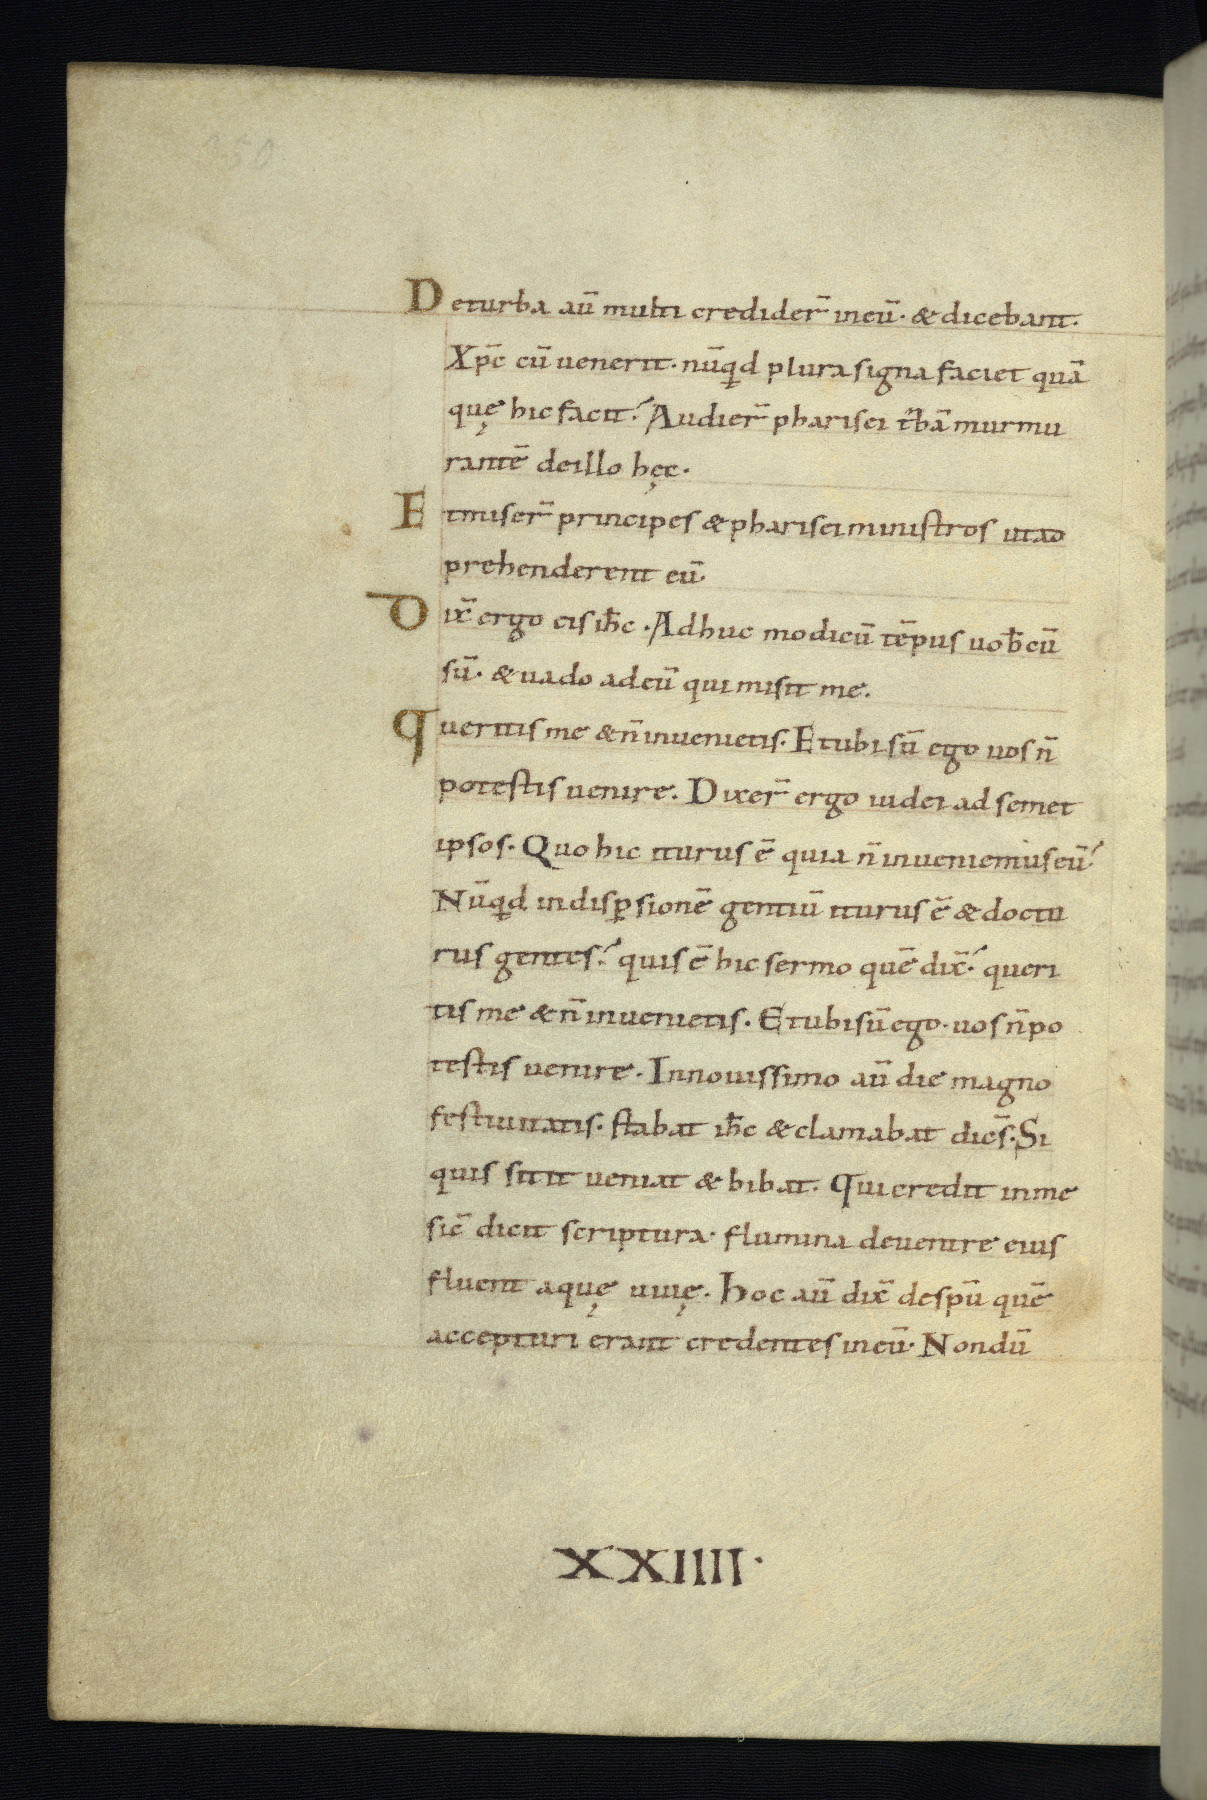 De turba aū multi credider̄ in eū· & dicebant·
Xp̄c cū uenerit· nūqͥd plura signa faciet quā
quę hic facit? Audier̄ pharisei tͬbā murmu
rantē de illo hęc·
Et miser̄ principes & pharisei ministros ut ad
prehenderent eū·
Dix̄ ergo eis ih̄c· Adhuc modicū tēpus uob̄cū
sū· & uado ad eū qui misit me.
Queritis me & n̄ inuenietis· Et ubi sū ego uos n̄
potestis uenire. Dixer̄ ergo iudei ad semet
ipsos· Quo hic iturus ē quia n̄ inueniemus eū?
Nūqͥd in disꝑsionē gentiū iturus ē & doctu
rus gentes? quis ē hic sermo quē dix̄? queri
tis me & n̄ inuenietis· Et ubi sū ego· uos n̄ po
testis uenire· In nouissimo aū die magno
festiuitatis· stabat ih̄c & clamabat dicēs· Si
quis sitit ueniat & bibat· Qui credit in me
sic̄ dicit scriptura· flumina de uentre eius
fluent aquę uiuę. Hoc aū dix̄ de sp̄u quē
accepturi erant credentes in eū· Nondū
XXIIII·